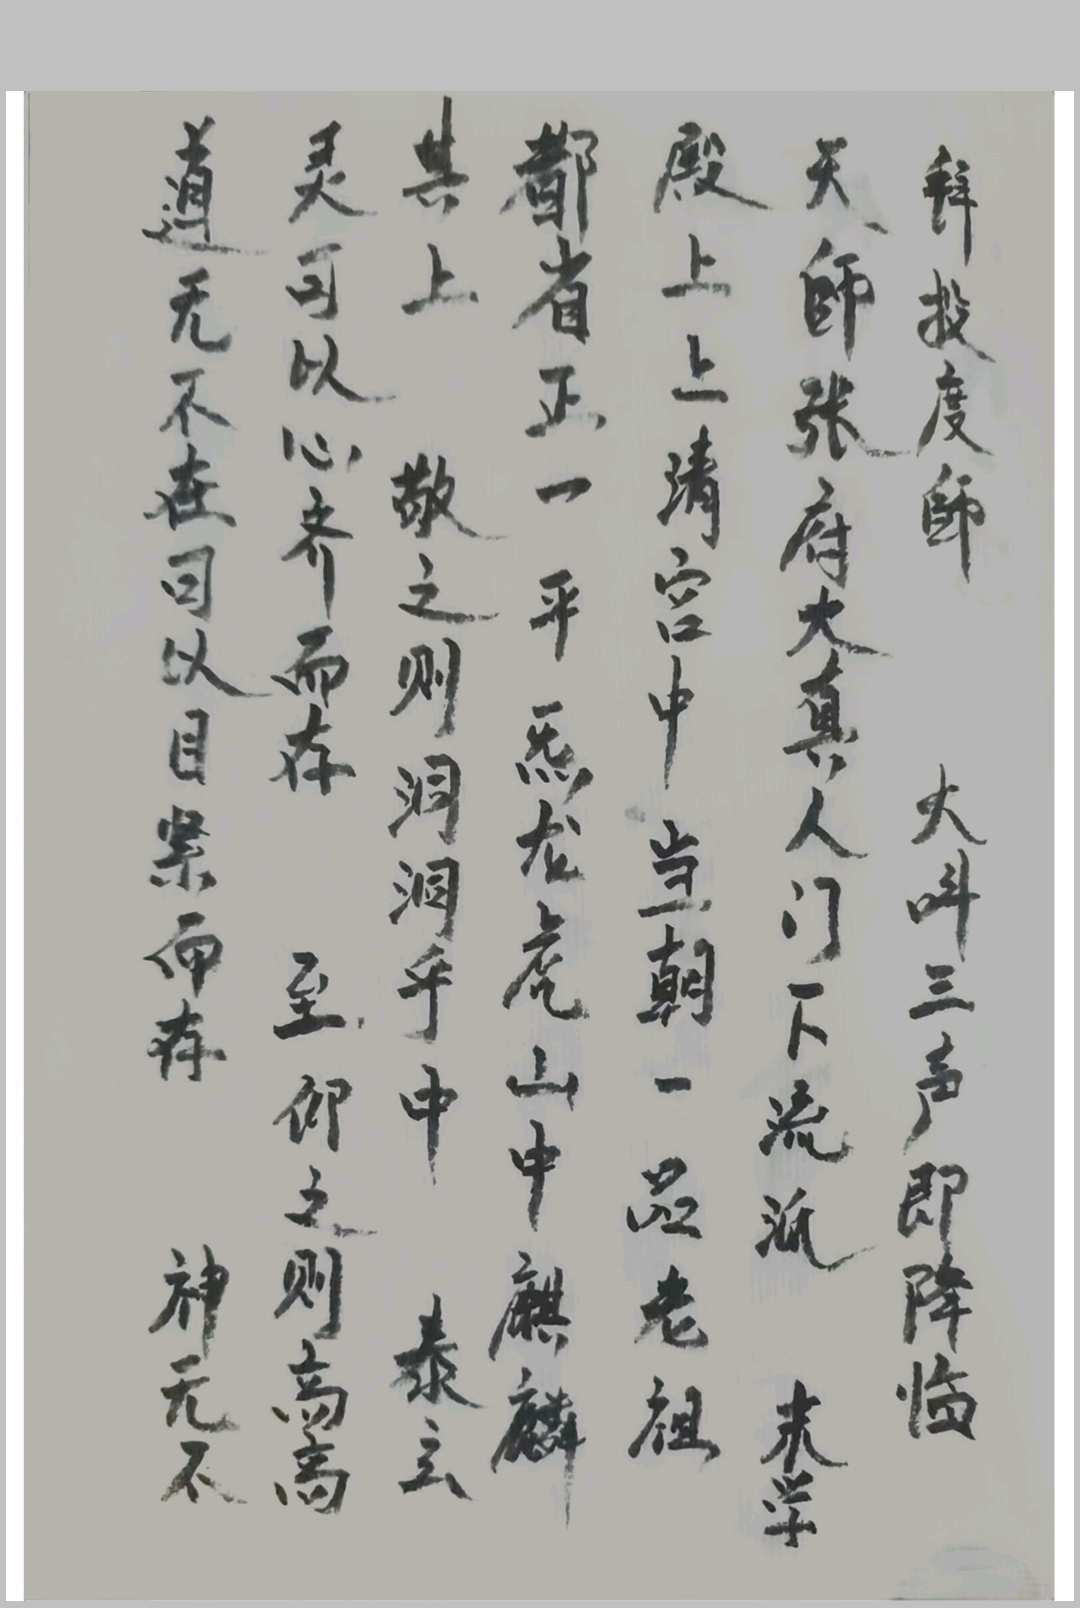 拜投度師 大叫三声即降临
天師張府大真人门下流派 末学
殿上上清宫中当朝一品老祖
都省正一平炁龙虎山中麒麟
其上 敬之则洞洞乎中 泰玄
灵可以心齐而存 至仰之则高高
道无不在可以目系而存 神无不